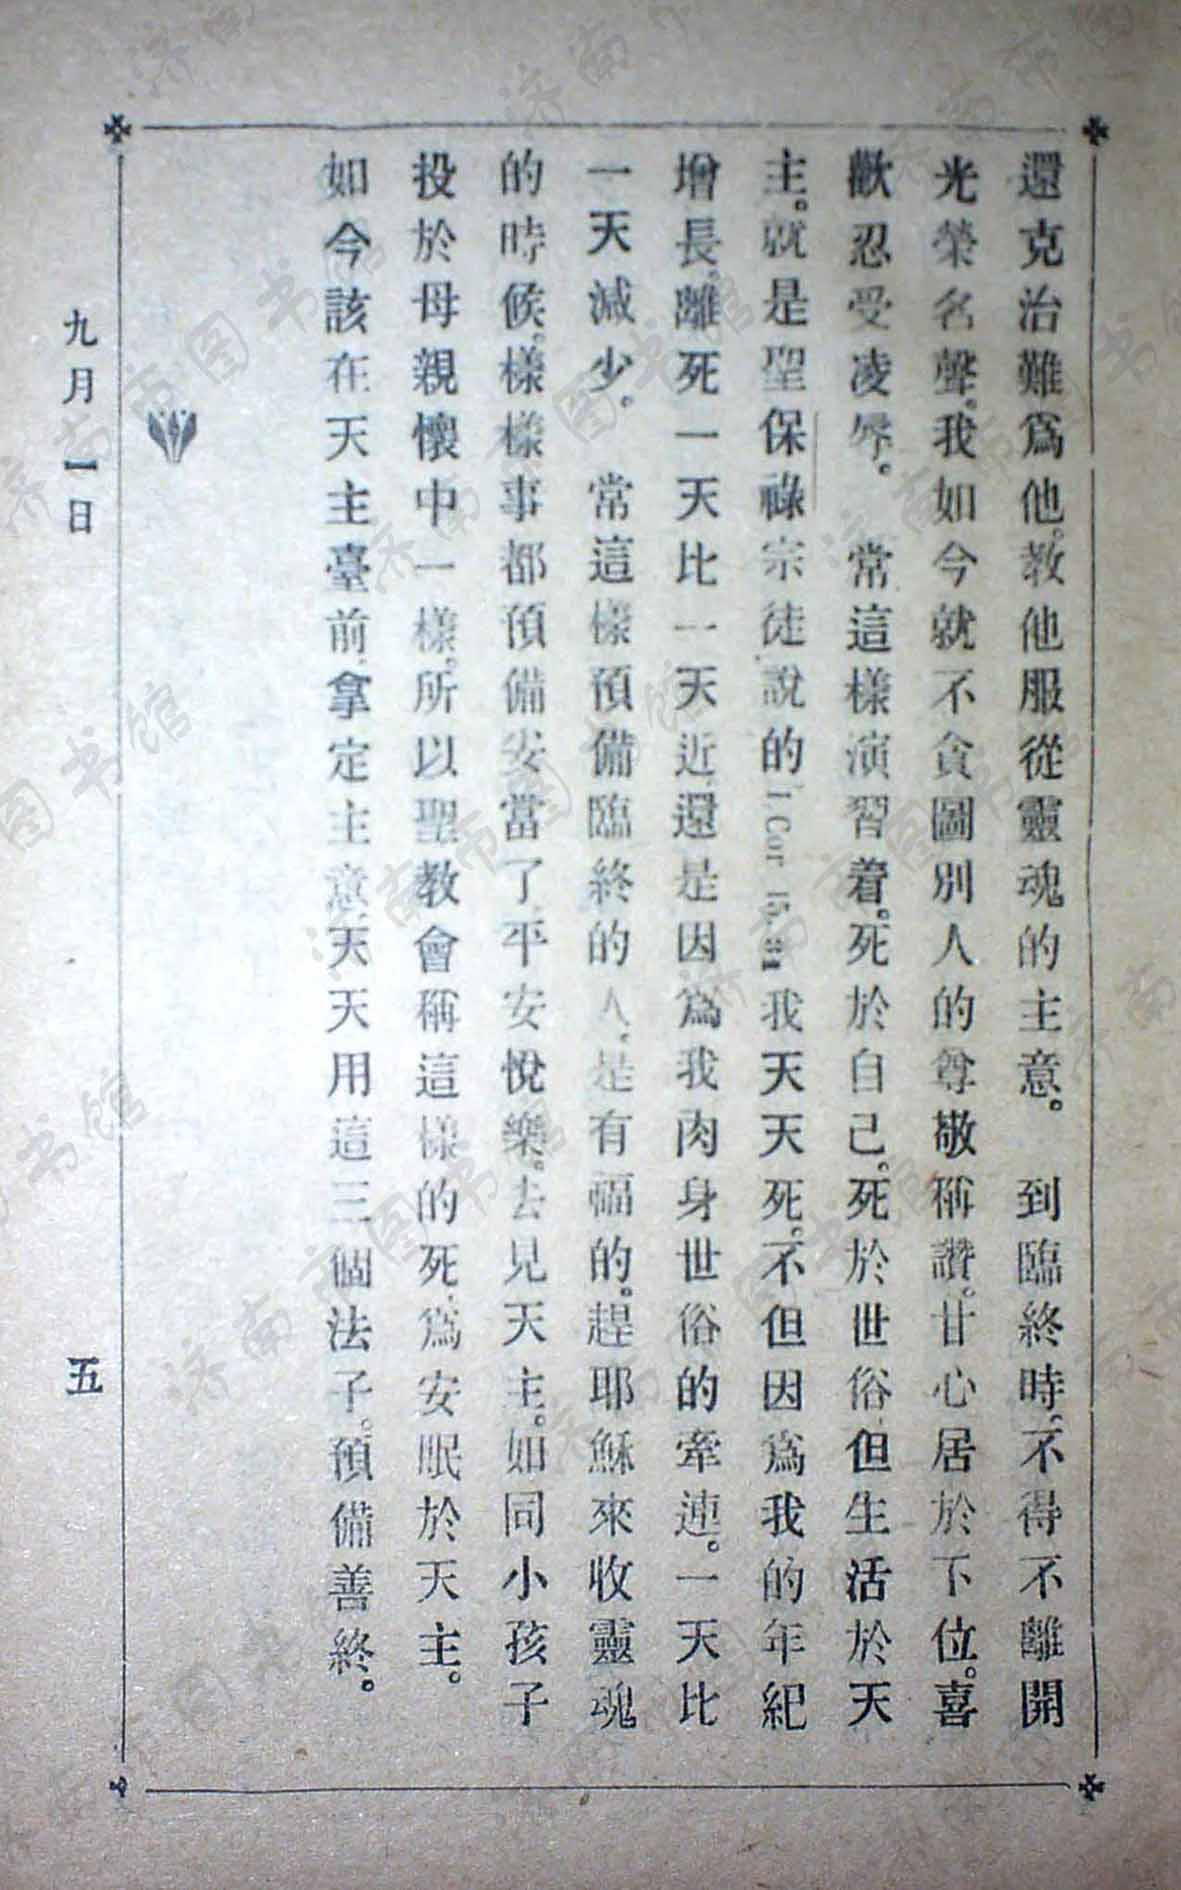 還克治難爲他。教他服從靈魂的主意。　到臨終時、不得不離開
光榮名聲。我如今就不貪圖別人的尊敬稱讚。甘心居於下位。喜
歡忍受凌辱。　常這樣演習着。死於自己。死於世俗、但生活於天
主。就是聖保祿宗徒、說的 1. Cor 15. 31 我天天死。不但因爲我的年紀
增長。離死一天比一天近、還是因爲我肉身世俗的牽連。一天比
一天減少。　常這樣預備臨終的人、是有福的。趕耶穌來收靈魂
的時候。樣樣事都預備妥當了、平安悅樂。去見天主。如同小孩子
投於母親懷中一樣。所以聖教會稱這樣的死、爲安眠於天主。
如今該在天主臺前、拿定主意、天天用這三個法子。預備善終。
九月一日　五
济南市图书馆